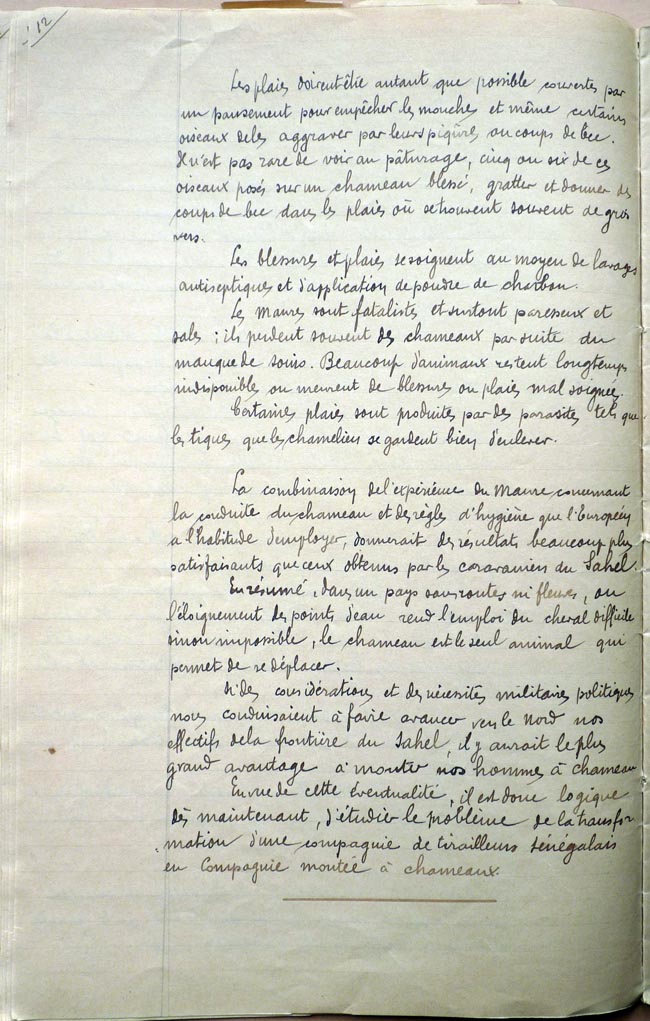 12
Les plaies doivent être autant que possible couvertes par
un pansement pour empêcher les mouches et même certains
oiseaux de les aggraver par leurs piqûres ou coups de bec.
Il n'est pas rare de voir au pâturage, cinq ou six de ces
oiseaux posés sur un chameau blessé, gratter et donner des
coups de bec dans les plaies où se trouvent souvent de gros
vers.
Les blessures et plaies se soignent au moyen de lavages
antiseptiques et d'application de poudre de charbon.
Les Maures sont fatalistes et surtout paresseux et
sales ; ils perdent souvent des chameaux par suite du
manque de soins. Beaucoup d'animaux restent longtemps
indisponibles ou meurent de blessures ou plaies mal soignées.
Certaines plaies sont produites par des parasites tels que
les tiques que les chameliers se gardent bien d'enlever.
La combinaison de l'expérience du Maure concernant
la conduite du chameau et des règles d'hygiène que l'Européen
a l'habitude d'employer, donnerait des résultats beaucoup plus
satisfaisants que ceux obtenus par les caravaniers du Sahel.
En résumé, dans un pays sans routes ni fleuves, où
l'éloignement des points d'eau rend l'emploi du cheval difficile
sinon impossible, le chameau est le seul animal qui
permet de se déplacer.
Si des considérations et des nécessités militaires politiques
nous conduisaient à faire avancer vers le Nord nos
effectifs de la frontière du Sahel, il y aurait le plus
grand avantage à monter nos hommes à chameau
En vue de cette éventualité, il est donc logique
dès maintenant, d'étudier le problème de la transfor-
mation d'une compagnie de tirailleurs sénégalais
en Compagnie montée à chameaux.